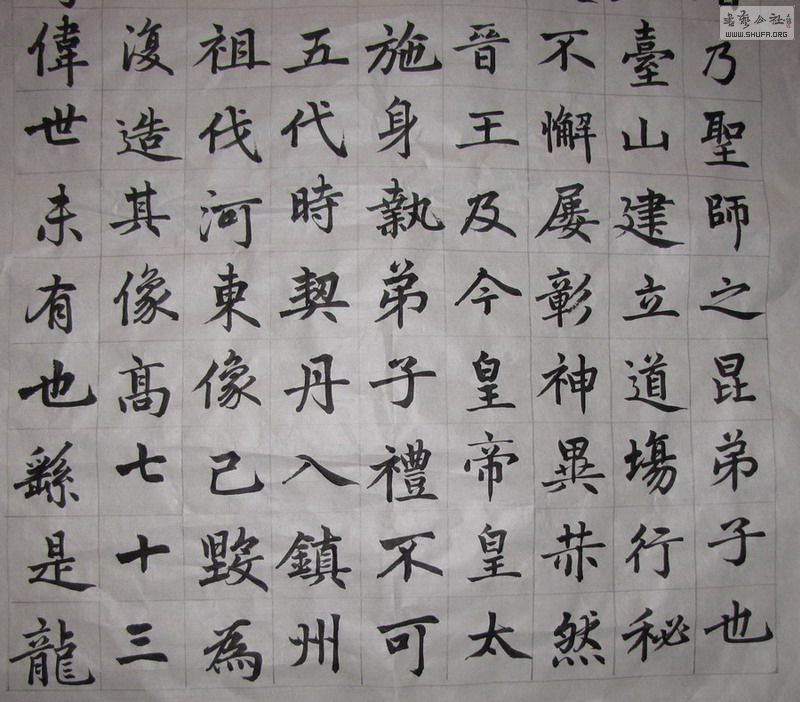 乃聖師之昆弟子也
臺山建立道塲行秘
不懈屢彰神異赫然
晉王及今皇帝皇太
施身執弟子禮不可
五代時契丹入鎮州
祖伐河東像已毀為
復造其像髙七十三
偉世未有也繇是龍
書藝公社
WWW.SHUFA.ORG